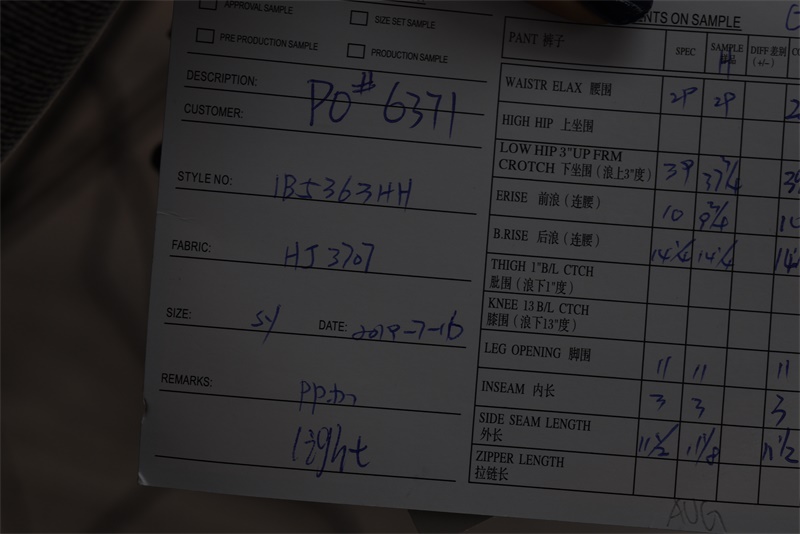 APPROVAL SAMPLE
SIZE SET SAMPLE
PRE PRODUCTION SAMPLE
PRODUCTION SAMPLE
DESCRIPTION:
PO# 6371
CUSTOMER:
STYLE NO: 1BJ363HH
FABRIC: HJ3707
SIZE: DATE: 2019-7-16
REMARKS:
ON SAMPLE
PANT 裤子 SPEC SAMPLE 样品 DIFF 差别 (+/-)
WAISTR ELAX 腰围 29 29
HIGH HIP 上坐围
LOW HIP 3"UP FRM
CROTCH 下坐围（浪上3"度） 39 37 3/4
F.RISE 前浪（连腰） 10 9 3/4
B.RISE 后浪（连腰） 14 1/4 14 1/4
THIGH 1"B/L CTCH
髀围（浪下1"度）
KNEE 13 B/L CTCH
膝围（浪下13"度）
LEG OPENING 脚围 11 11 11
INSEAM 内长 3 3 3
SIDE SEAM LENGTH
外长 11 1/2 11 1/8 11 1/2
ZIPPER LENGTH
拉链长
AUG